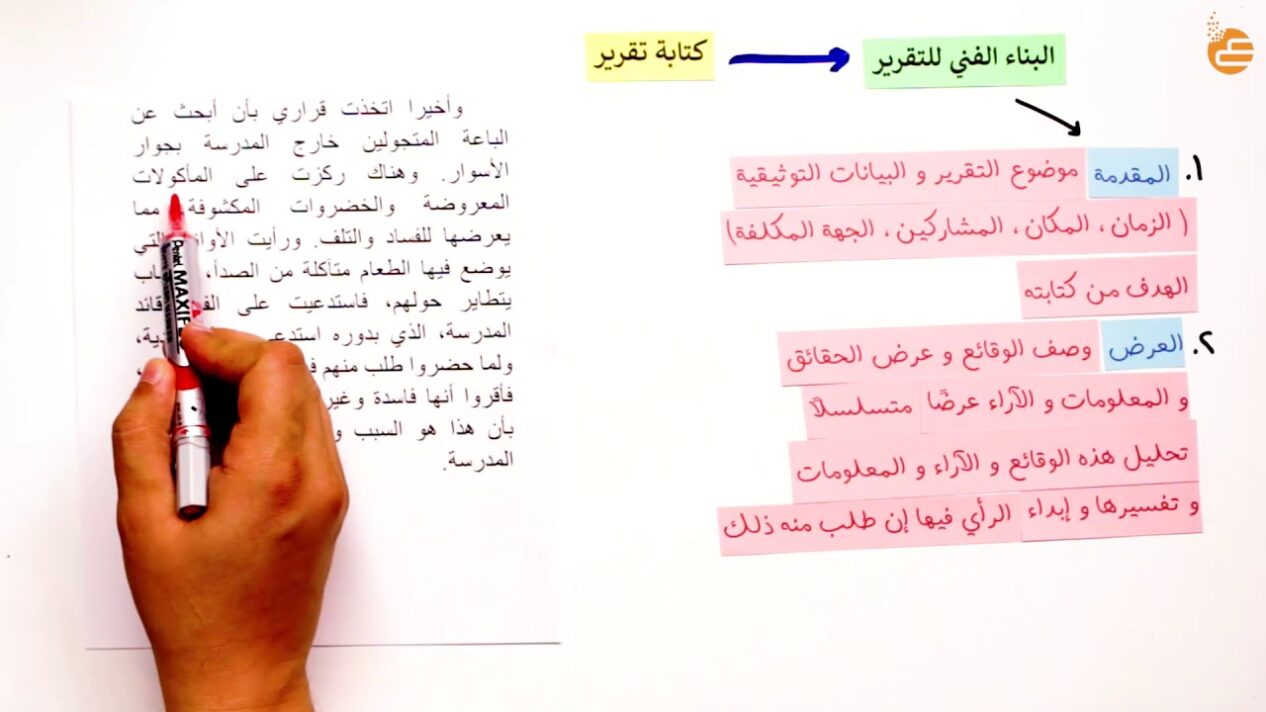 كتابة تقرير
البناء الفني للتقرير
١. المقدمة موضوع التقرير و البيانات التوثيقية
( الزمان ، المكان ، المشاركين ، الجهة المكلفة)
الهدف من كتابته
٢. العرض وصف الوقائع و عرض الحقائق
و المعلومات و الآراء عرضًا متسلسلاً
تحليل هذه الوقائع و الآراء و المعلومات
و تفسيرها و إبداء الرأي فيها إن طلب منه ذلك
وأخيرا اتخذت قراري بأن أبحث عن
الباعة المتجولين خارج المدرسة بجوار
الأسوار. وهناك ركزت على المأكولات
المعروضة والخضروات المكشوفة مما
يعرضها للفساد والتلف. ورأيت التي
يوضع فيها الطعام متآكلة من الصدأ،
يتطاير حولهم، فاستدعيت على قائد
المدرسة، الذي بدوره
ولما حضروا طلب منهم
فأقروا أنها فاسدة
بأن هذا هو السبب
المدرسة.
Pentel MAXIF